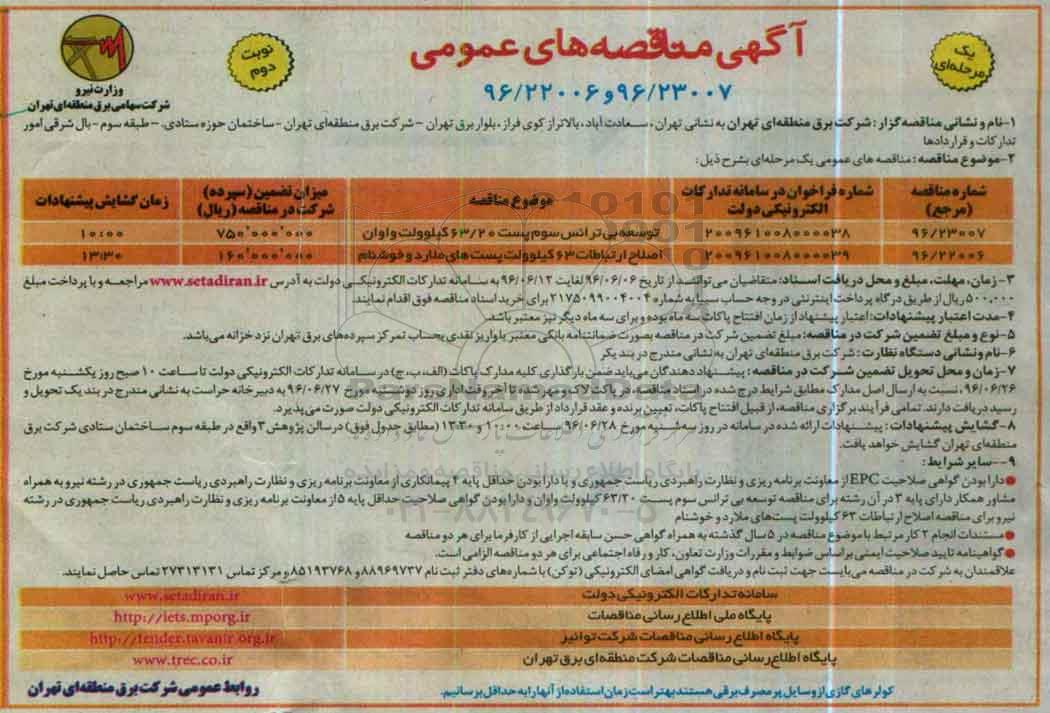 آگهی مناقصه‌های عمومی
۹۶/۲۳۰۰۷ و ۹۶/۲۲۰۰۶
یک مرحله‌ای
نوبت دوم
وزارت نیرو
شرکت سهامی برق منطقه‌ای تهران
۱-نام و نشانی مناقصه گزار: شرکت برق منطقه‌ای تهران به نشانی تهران، سعادت آباد، بالاتر از کوی فراز، بلوار برق تهران - شرکت برق منطقه‌ای تهران - ساختمان حوزه ستادی - طبقه سوم - بال شرقی امور
تدارکات و قراردادها
۲-موضوع مناقصه: مناقصه های عمومی یک مرحله‌ای بشرح ذیل:
شماره مناقصه (مرجع) شماره فراخوان در سامانه تدارکات الکترونیکی دولت موضوع مناقصه میزان تضمین (سپرده) شرکت در مناقصه (ریال) زمان گشایش پیشنهادات
۹۶/۲۳۰۰۷ ۲۰۰۹۶۱۰۰۸۰۰۰۰۳۸ توسعه بی ترانس سوم پست ۶۳/۲۰ کیلوولت واوان ۷۵۰٬۰۰۰٬۰۰۰ ۱۰:۰۰
۹۶/۲۲۰۰۶ ۲۰۰۹۶۱۰۰۸۰۰۰۰۳۹ اصلاح ارتباطات ۶۳ کیلوولت پست های ملارد و خوشنام ۱۶۰٬۰۰۰٬۰۰۰ ۱۳:۳۰
۳- زمان، مهلت، مبلغ و محل دریافت اسناد: متقاضیان می‌توانند از تاریخ ۹۶/۰۶/۰۶ لغایت ۹۶/۰۶/۱۲ به سامانه تدارکات الکترونیکی دولت به آدرس www.setadiran.ir مراجعه و با پرداخت مبلغ
۵۰۰,۰۰۰ ریال از طریق درگاه پرداخت اینترنتی در وجه حساب سیبا به شماره ۲۱۷۵۰۹۹۰۰۴۰۰۴ برای خرید اسناد مناقصه فوق اقدام نمایند.
۴-مدت اعتبار پیشنهادات: اعتبار پیشنهاد از زمان افتتاح پاکات سه ماه بوده و برای سه ماه دیگر نیز معتبر باشد.
۵-نوع و مبلغ تضمین شرکت در مناقصه: مبلغ تضمین شرکت در مناقصه بصورت ضمانتنامه بانکی معتبر یا واریز نقدی بحساب تمرکز سپرده‌های برق تهران نزد خزانه می‌باشد.
۶-نام ونشانی دستگاه نظارت: شرکت برق منطقه‌ای تهران به نشانی مندرج در بند یک
۷-زمان و محل تحویل تضمین شرکت در مناقصه: پیشنهاد دهندگان می‌باید ضمن بارگذاری کلیه مدارک پاکات (الف، ب، ج) در سامانه تدارکات الکترونیکی دولت تا ساعت ۱۰ صبح روز یکشنبه مورخ
۹۶/۰۶/۲۶، نسبت به ارسال اصل مدارک مطابق شرایط درج شده در اسناد مناقصه، در پاکت لاک و مهر شده تا آخر وقت اداری روز دوشنبه مورخ ۹۶/۰۶/۲۷ به دبیرخانه حراست به نشانی مندرج در بند یک تحویل و
رسید دریافت دارند. تمامی فرآیند برگزاری مناقصه، از قبیل افتتاح پاکات، تعیین برنده و عقد قرارداد از طریق سامانه تدارکات الکترونیکی دولت صورت می‌پذیرد.
۸-گشایش پیشنهادات: پیشنهادات ارائه شده در سامانه در روز سه‌شنبه مورخ ۹۶/۰۶/۲۸ ساعت ۱۰:۰۰ و ۱۳:۳۰ (مطابق جدول فوق) در سالن پژوهش ۳ واقع در طبقه سوم ساختمان ستادی شرکت برق
منطقه‌ای تهران گشایش خواهد یافت.
۹--سایر شرایط:
● دارا بودن گواهی صلاحیت EPC از معاونت برنامه ریزی و نظارت راهبردی ریاست جمهوری و یا دارا بودن حداقل پایه ۴ پیمانکاری از معاونت برنامه ریزی و نظارت راهبردی ریاست جمهوری در رشته نیرو به همراه
مشاور همکار دارای پایه ۳ در آن رشته برای مناقصه توسعه بی ترانس سوم پست ۶۳/۲۰ کیلوولت واوان و دارا بودن گواهی صلاحیت حداقل پایه ۵ از معاونت برنامه ریزی و نظارت راهبردی ریاست جمهوری در رشته
نیرو برای مناقصه اصلاح ارتباطات ۶۳ کیلوولت پست‌های ملارد و خوشنام
● مستندات انجام ۲ کار مرتبط با موضوع مناقصه در ۵ سال گذشته به همراه گواهی حسن سابقه اجرایی از کارفرما برای هر دو مناقصه
● گواهینامه تایید صلاحیت ایمنی براساس ضوابط و مقررات وزارت تعاون، کار و رفاه اجتماعی برای هر دو مناقصه الزامی است.
علاقمندان به شرکت در مناقصه می‌بایست جهت ثبت نام و دریافت گواهی امضای الکترونیکی (توکن) با شماره‌های دفتر ثبت نام ۸۸۹۶۹۷۳۷ و ۸۵۱۹۳۷۶۸ و مرکز تماس ۲۷۳۱۳۱۳۱ تماس حاصل نمایند.
سامانه تدارکات الکترونیکی دولت www.setadiran.ir
پایگاه ملی اطلاع رسانی مناقصات http://iets.mporg.ir
پایگاه اطلاع رسانی مناقصات شرکت توانیر http://tender.tavanir.org.ir
پایگاه اطلاع‌رسانی مناقصات شرکت منطقه‌ای برق تهران www.trec.co.ir
کولرهای گازی از وسایل پرمصرف برقی هستند بهتر است زمان استفاده از آنها را به حداقل برسانیم.
روابط عمومی شرکت برق منطقه‌ای تهران
پایگاه اطلاع رسانی مناقصه و مزایده
۰۲۱-۸۸۳۴۹۶۷۰-۵